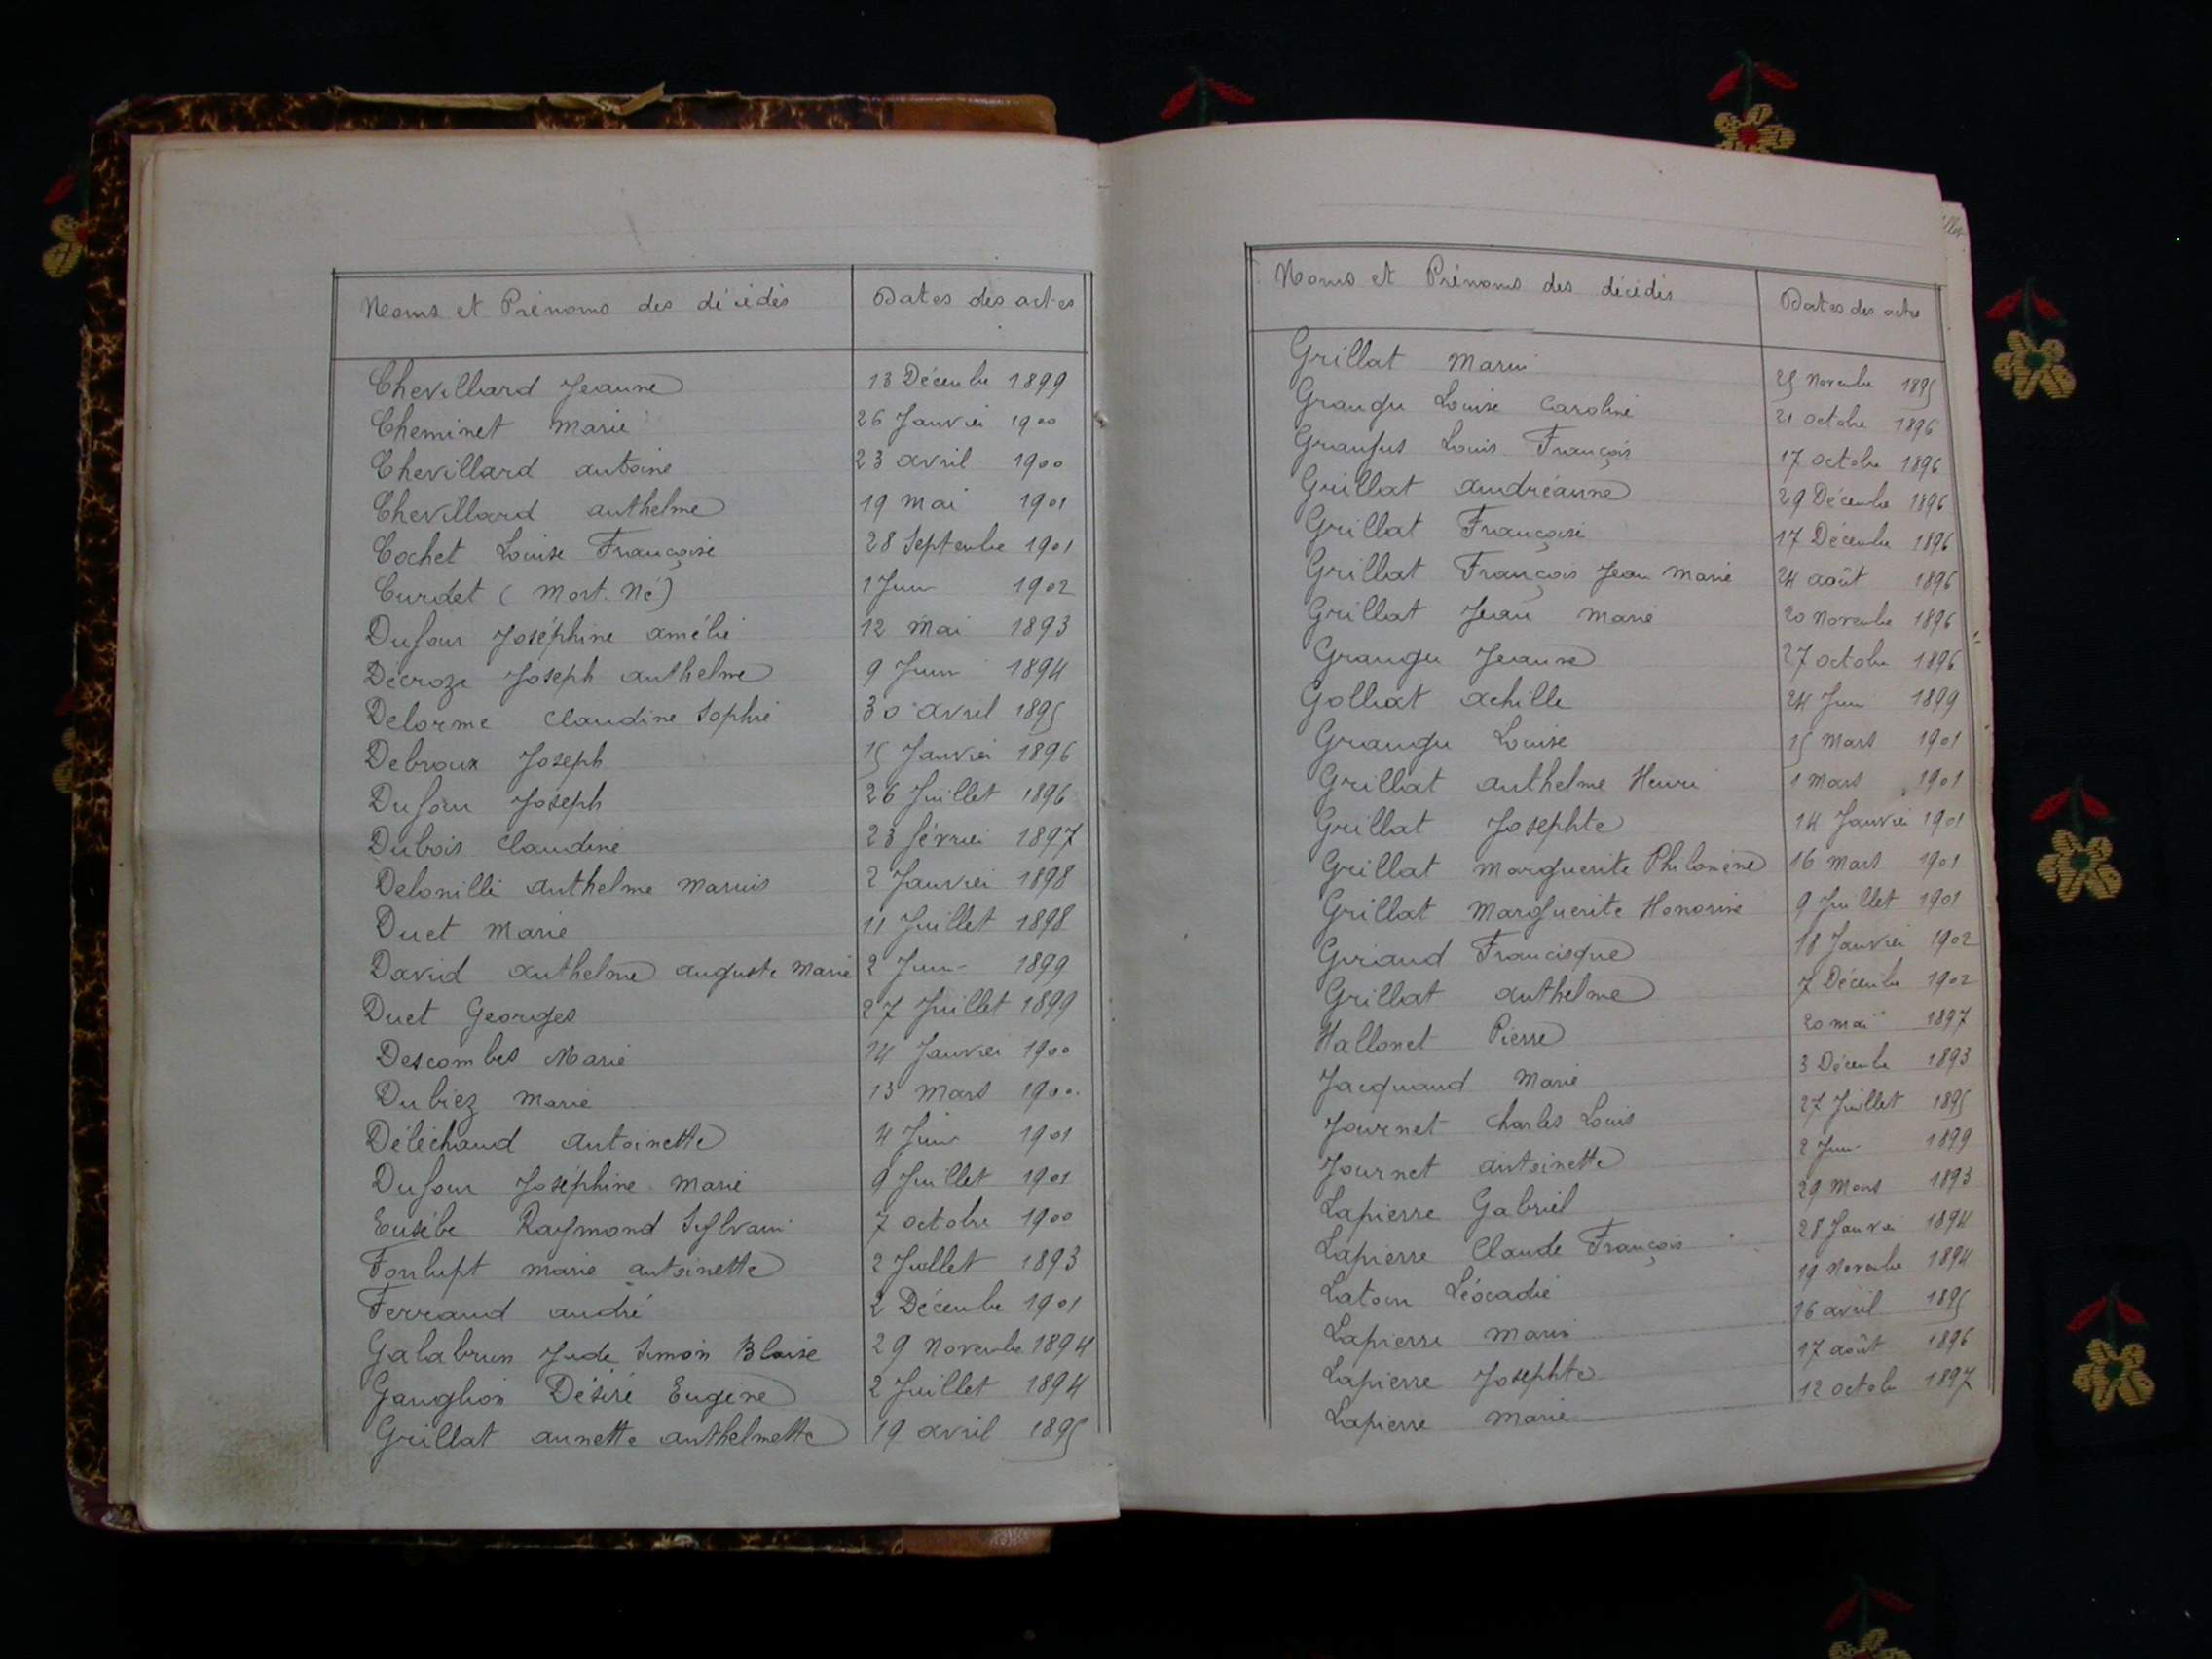 Noms et Prénoms des décédés Dates des actes
Chevilliard Jeanne 13 Décembre 1899
Cheminet Marie 26 Janvier 1900
Chevillard antoine 23 avril 1900
Chevillard anthelme 19 mai 1901
Cochet Louise Françoise 28 Septembre 1901
Curdet (Mort. Né) 1 Juin 1902
Dufour Joséphine amélie 12 Mai 1893
Décroze Joseph anthelme 9 Juin 1894
Delorme Claudine Sophie 30 avril 1895
Debroux Joseph 15 Janvier 1896
Dufour Joseph 26 Juillet 1896
Dubois Claudine 23 février 1897
anthelme Marius 2 Janvier 1898
Duet Marie 11 Juillet 1898
David anthelme auguste Marie 2 Juin 1899
Duet Georges 27 Juillet 1899
Descombes Marie 14 Janvier 1900
Dubiez Marie 13 Mars 1900
Déléchaud antoinette 4 Juin 1901
Dufour Joséphine Marie 9 Juillet 1901
Eusèbe Raymond Sylvain 7 octobre 1900
Fonlupt marie antoinette 2 Juillet 1893
Ferraud andré 2 Décembre 1901
Galabrun Jude Simon Blaise 29 Novembre 1894
Ganglion Désiré Eugène 2 Juillet 1894
Grillat annette anthelmette 19 avril 1895
Noms et Prénoms des décédés Dates des actes
Grillat Marie 25 Novembre 1895
Granger Louise Caroline 21 octobre 1896
Louis François 17 octobre 1896
Grillat andréanne 29 Décembre 1896
Grillat Françoise 17 Décembre 1896
Grillat François Jean Marie 24 août 1896
Grillat Jean Marie 20 Novembre 1896
Granger Jeanne 27 octobre 1896
Golliat achille 24 Juin 1899
Granger Louise 15 Mars 1901
Grillat anthelme Henri 1 Mars 1901
Grillat Josephte 14 Janvier 1901
Grillat Marguerite Philomène 16 Mars 1901
Grillat Marguerite Honorine 9 Juillet 1901
Giraud Francisque 18 Janvier 1902
Grillat anthelme 7 Décembre 1902
Hallonet Pierre 20 mai 1897
Jacquand Marie 3 Décembre 1893
Journet Charles Louis 27 Juillet 1895
Journet antoinette 2 Juin 1899
Lapierre Gabriel 29 Mars 1893
Lapierre Claude François 28 Janvier 1894
Latour Léocadie 19 Novembre 1894
Lapierre Marie 16 avril 1895
Lapierre Josephte 17 août 1896
Lapierre Marie 12 octobre 1897